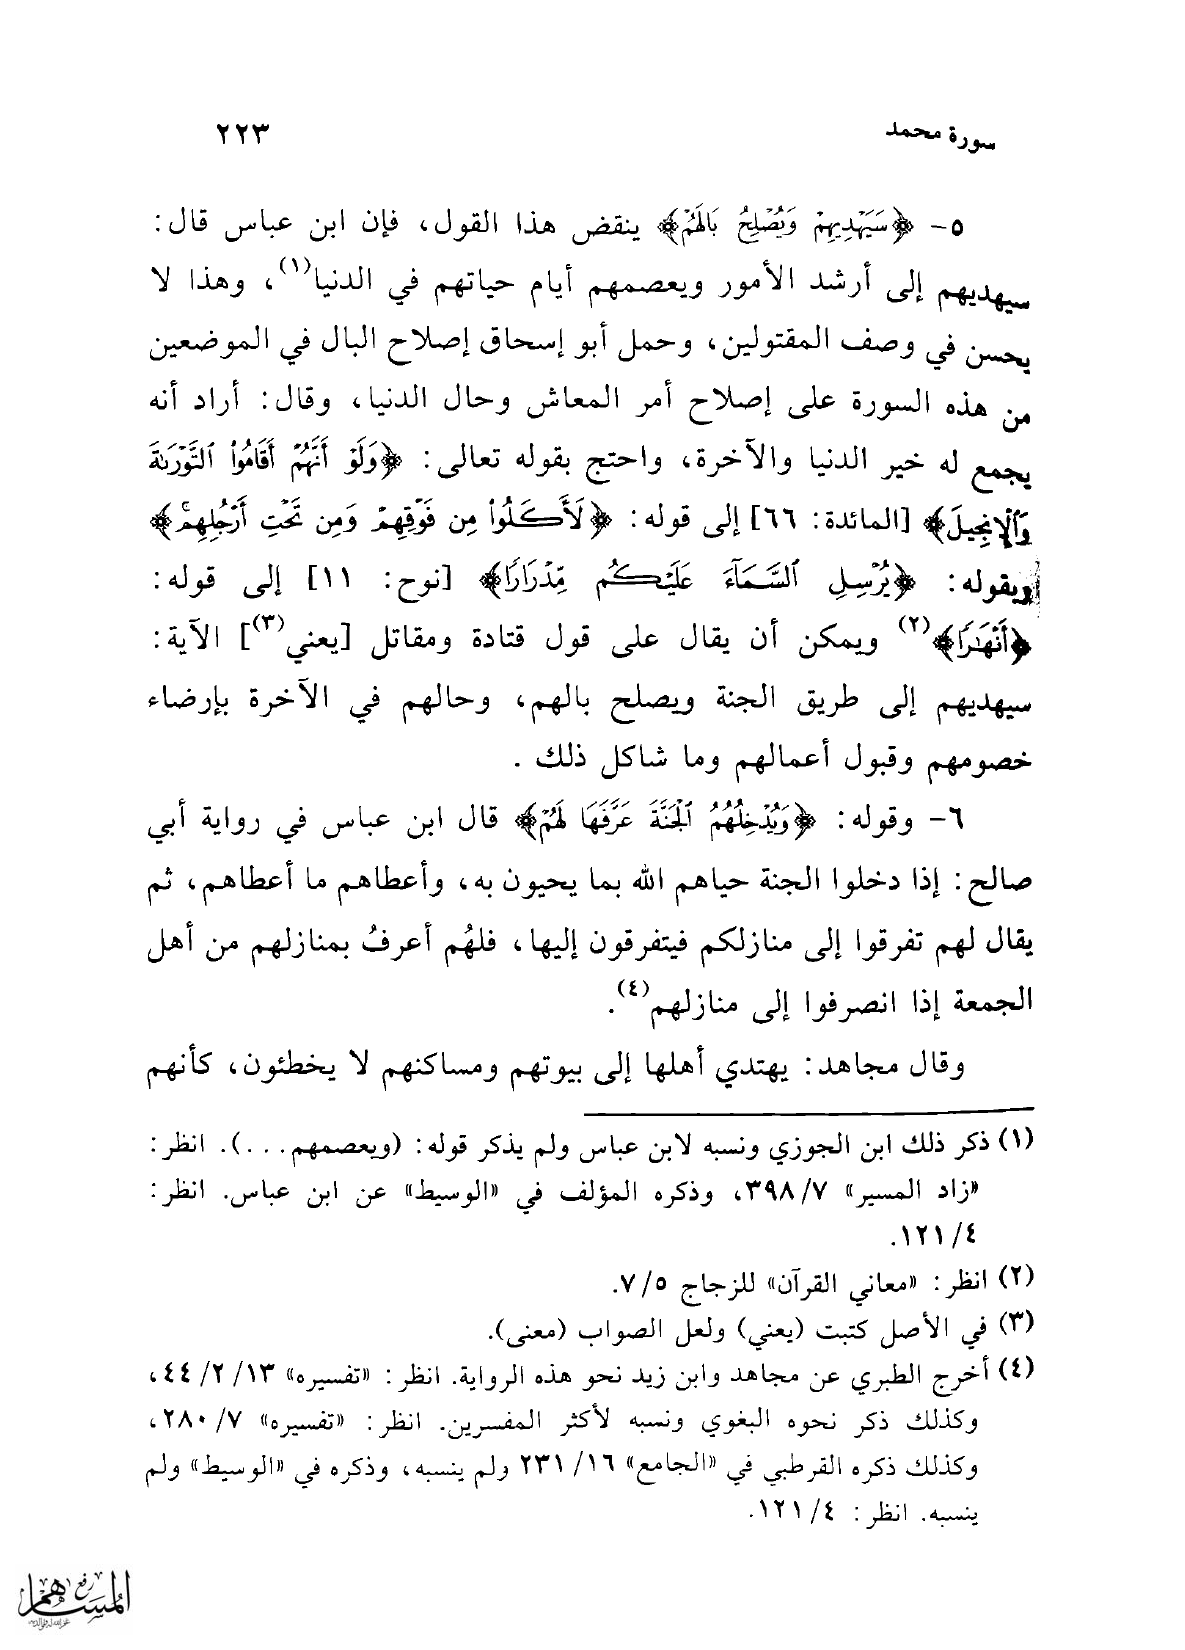 سورة محمد
٢٢٣
٥- ﴿سَيَهْدِيهِمْ وَيُصْلِحُ بَالَهُمْ﴾ ينقض هذا القول، فإن ابن عباس قال:
سيهديهم إلى أرشد الأمور ويعصمهم أيام حياتهم في الدنيا(١)، وهذا لا
يحسن في وصف المقتولين، وحمل أبو إسحاق إصلاح البال في الموضعين
من هذه السورة على إصلاح أمر المعاش وحال الدنيا، وقال: أراد أنه
يجمع له خير الدنيا والآخرة، واحتج بقوله تعالى: ﴿وَلَوْ أَنَّهُمْ أَقَامُوا۟ ٱلتَّوْرَىٰةَ
وَٱلْإِنجِيلَ﴾ [المائدة: ٦٦] إلى قوله: ﴿لَأَكَلُوا۟ مِن فَوْقِهِمْ وَمِن تَحْتِ أَرْجُلِهِمْ﴾
وبقوله: ﴿يُرْسِلِ ٱلسَّمَآءَ عَلَيْكُم مِّدْرَارًا﴾ [نوح: ١١] إلى قوله:
﴿أَنْهَٰرًا﴾(٢) ويمكن أن يقال على قول قتادة ومقاتل [يعني(٣)] الآية:
سيهديهم إلى طريق الجنة ويصلح بالهم، وحالهم في الآخرة بإرضاء
خصومهم وقبول أعمالهم وما شاكل ذلك .
٦- وقوله: ﴿وَيُدْخِلُهُمُ ٱلْجَنَّةَ عَرَّفَهَا لَهُمْ﴾ قال ابن عباس في رواية أبي
صالح: إذا دخلوا الجنة حياهم الله بما يحيون به، وأعطاهم ما أعطاهم، ثم
يقال لهم تفرقوا إلى منازلكم فيتفرقون إليها، فلهُم أعرفُ بمنازلهم من أهل
الجمعة إذا انصرفوا إلى منازلهم(٤).
وقال مجاهد: يهتدي أهلها إلى بيوتهم ومساكنهم لا يخطئون، كأنهم
(١) ذكر ذلك ابن الجوزي ونسبه لابن عباس ولم يذكر قوله: (ويعصمهم...). انظر:
«زاد المسير» ٧/ ٣٩٨، وذكره المؤلف في «الوسيط» عن ابن عباس. انظر:
٤/ ١٢١.
(٢) انظر: «معاني القرآن» للزجاج ٥/ ٧.
(٣) في الأصل كتبت (يعني) ولعل الصواب (معنى).
(٤) أخرج الطبري عن مجاهد وابن زيد نحو هذه الرواية. انظر: «تفسيره» ١٣/ ٢/ ٤٤،
وكذلك ذكر نحوه البغوي ونسبه لأكثر المفسرين. انظر: «تفسيره» ٧/ ٢٨٠،
وكذلك ذكره القرطبي في «الجامع» ١٦/ ٢٣١ ولم ينسبه، وذكره في «الوسيط» ولم
ينسبه. انظر: ٤/ ١٢١.